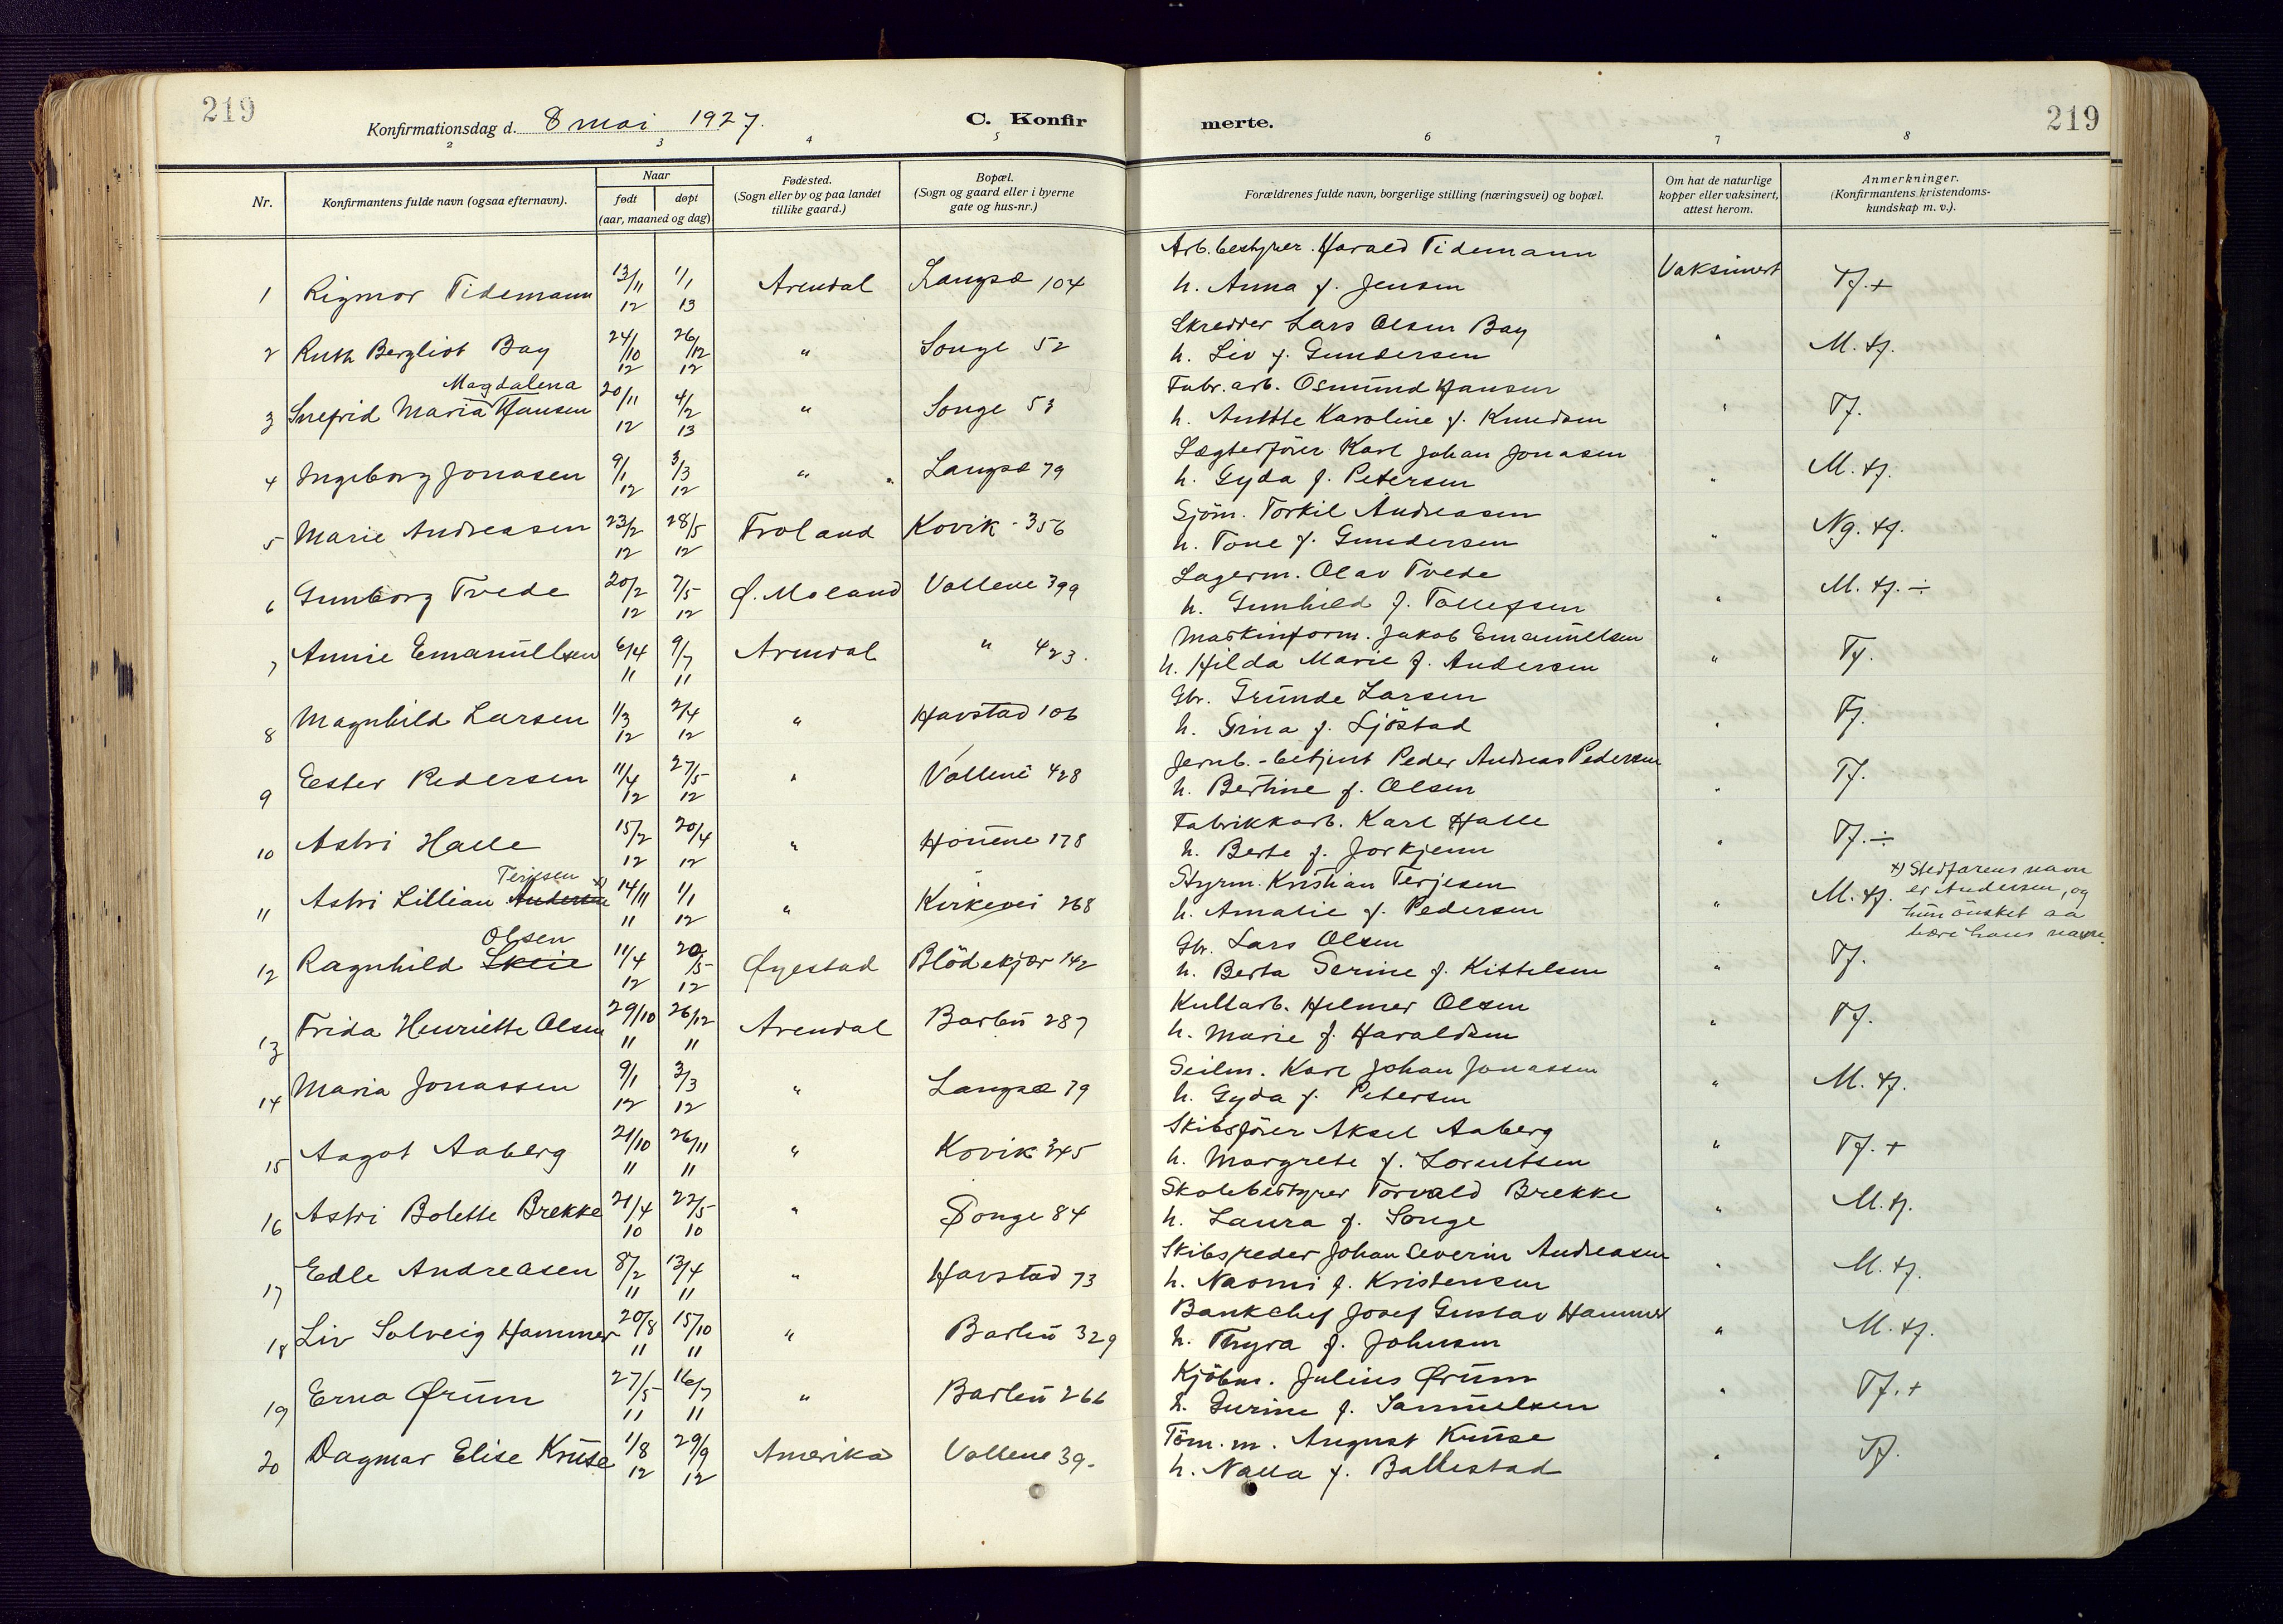 219
Konfirmationsdag d. 8 mai 1927.
C. Konfirmerte.
219
2 3 4 5 6 7 8
Nr.
Konfirmantens fulde navn (ogsaa efternavn).
Naar
født døpt
(aar, maaned og dag)
Fødested.
(Sogn eller by og paa landet
tillike gaard.)
Bopæl.
(Sogn og gaard eller i byerne
gate og hus-nr.)
Forældrenes fulde navn, borgerlige stilling (næringsvei) og bopæl.
Om hat de naturlige
kopper eller vaksinert,
attest herom.
Anmerkninger.
(Konfirmantens kristendoms-
kundskap m. v.).
Arb. bestyrer. Harald Tidemann
1 Rigmor Tidemann 13/11 12 1/1 13 Arendal Langsæ 104 h. Anna f. Jensen Vaksinert Tf. +
Skredder Lars Olsen Bay
2 Ruth Bergliot Bay 24/10 12 26/12 12 " Songe 52 h. Liv f. Gundersen " M. tf.
Magdalena
Fabr. arb. Osmund Hansen
3 Snefrid Maria Hansen 20/11 12 4/2 13 " Songe 53 h. Anette Karoline f. Knudsen " Tf.
Lægterfører Karl Johan Jonasen
4 Ingeborg Jonasen 9/1 12 3/3 12 " Langsæ 79 h. Gyda f. Petersen " M. tf.
Sjøm. Torkil Andreasen
5 Marie Andreassen 23/2 12 28/5 12 Froland Kovik - 356 h. Tone f. Gundersen " Ng. tf.
Lagerm. Olav Tvede
6 Gunborg Tvede 20/2 12 7/5 12 Ø. Moland Vollene 399 h. Gunhild f. Tollefsen " M. tf. ÷
Maskinform. Jakob Emanuelsen
7 Annie Emanuellsen 6/4 11 9/7 11 Arendal " 423. h. Hilda Marie f. Andersen " Tf.
Gbr. Grunde Larsen
8 Magnhild Larsen 1/3 12 2/4 12 " Havstad 106 h. Gina f. Sjøstad " Tf.
Jernb. - betjent Peder Andreas Pedersen
9 Ester Pedersen 11/4 12 27/5 12 " Vollene 428 h. Bertine f. Olsen " Tf.
Fabrikkarb. Karl Halle
10 Astri Halle 15/2 12 20/4 12 " Houene 178 h. Berte f. Jorkjenn " Tf. ÷
Terjesen x)
Styrm. Kristian Terjesen
11 Astri Lillian Andersen 14/11 11 1/1 12 " Kirkevei 268 h. Amalie f. Pedersen " M. tf.
x) Stedfarens navn
er Andersen, og
hun ønsket aa
bære hans navn.
Olsen
Gbr. Lars Olsen
12 Ragnhild Skeie 11/4 12 20/5 12 Øyestad Blødekjær 142 h. Berta Serine f. Kittelsen " Tf.
Kullarb. Helmer Olsen
13 Frida Henriette Olsen 29/10 11 26/12 11 Arendal Barbu 287 h. Marie f. Haraldsen " Tf.
Seilm. Karl Johan Jonassen
14 Maria Jonassen 9/1 12 3/3 12 " Langsæ 79 h. Gyda f. Petersen " M. tf.
Skibsfører Aksel Aaberg
15 Aagot Aaberg 21/10 11 26/11 11 " Kovik 345 h. Margrete f. Lorentsen " Tf. +
Skolebestyrer Torvald Brekke
16 Astri Bolette Brekke 21/4 10 22/5 10 " Songe 84 h. Laura f. Songe " M. tf.
Skibsreder Johan Severin Andreasen
17 Edle Andreasen 8/2 11 13/4 11 " Havstad 73 h. Naomi f. Kristensen " M. tf.
Bankchef Josef Gustav Hammer
18 Liv Solveig Hammer 20/8 11 15/10 11 " Barbu 329 h. Thyra f. Johnsen " M. tf.
Kjøbm. Julius Ørum
19 Erna Ørum 27/5 11 16/7 11 " Barbu 266 h. Gurine f. Samuelsen " Tf. +
Tøm. m. August Kruse
20 Dagmar Elise Kruse 1/8 12 29/9 12 Amerika Vollene 39. h. Nalla f. Ballestad " Tf.